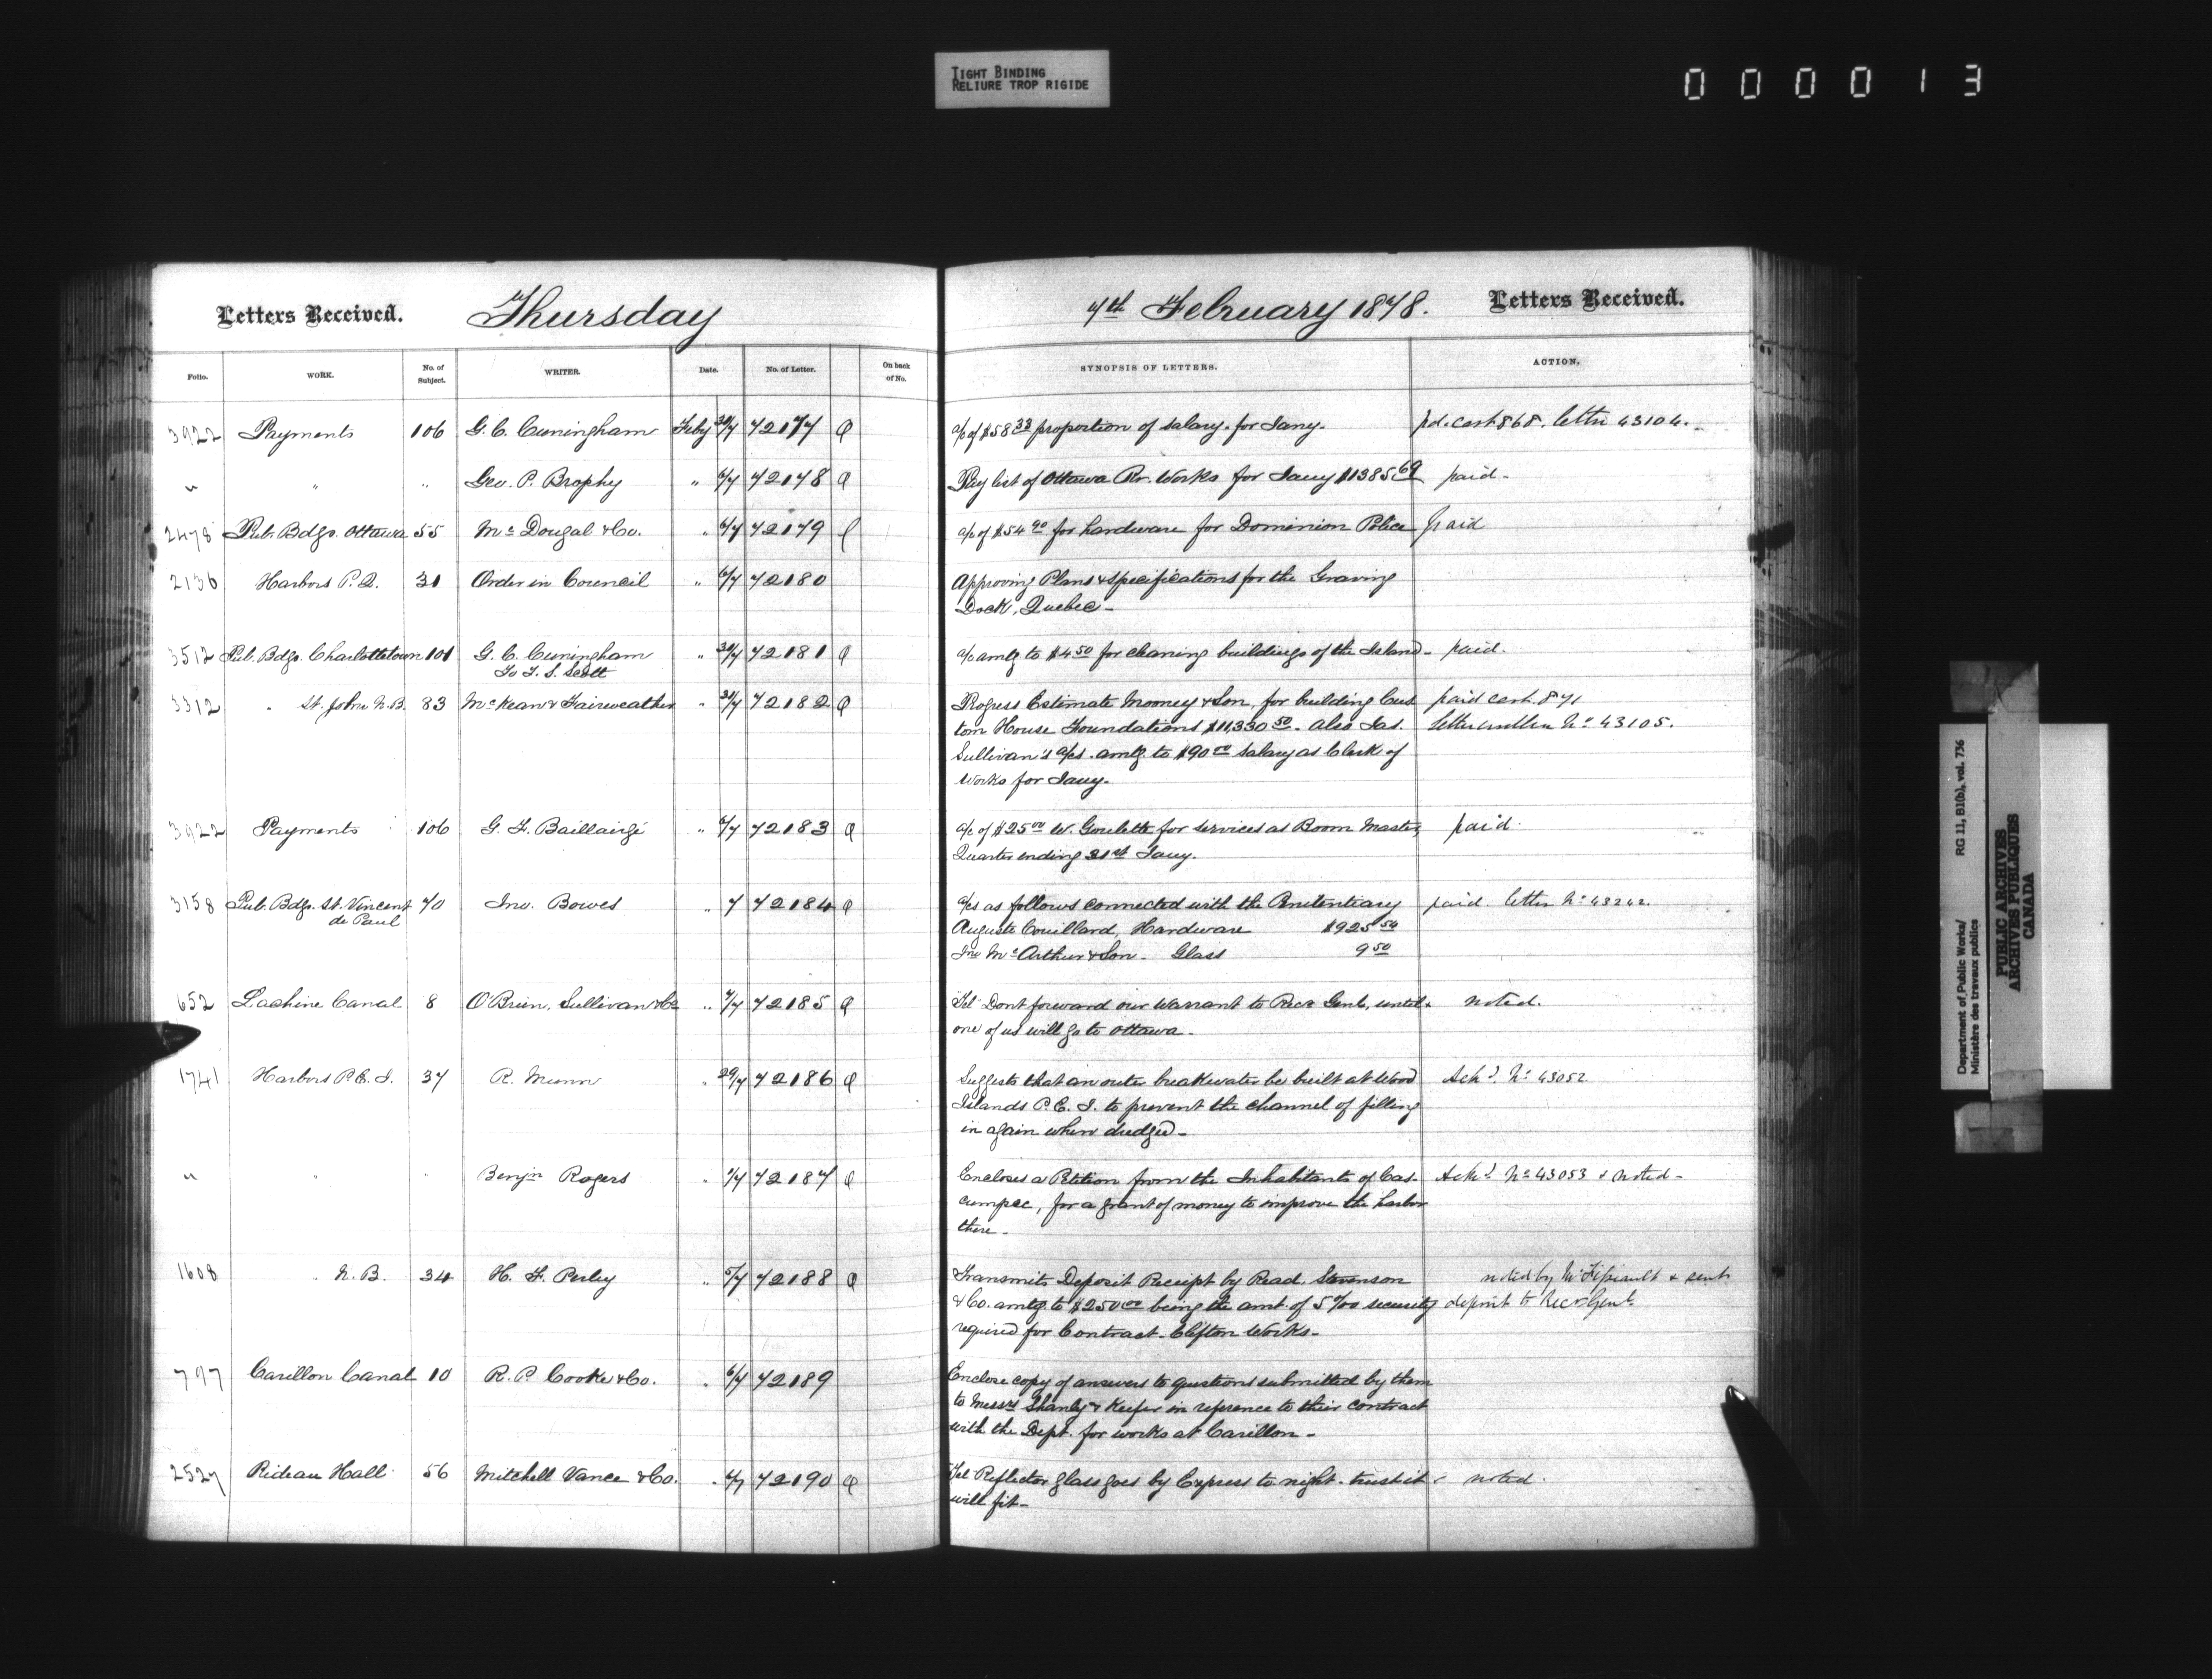 TIGHT BINDING
RELIURE TROP RIGIDE
000013
Letters Received. Thursday 7th February 1878. Letters Received.
Folio. WORK. No. of Subject. WRITER. Date. No. of Letter. On back of No. SYNOPSIS OF LETTERS. ACTION.
3922 Payments 106 G. C. Cuningham Feby 30/7 72177 Q a/c of $58 33 proportion of salary for Jany. pd. cert 868. letter 43104.
" " " Geo. P. Brophy " 6/7 72178 Q Pay list of Ottawa Rr. Works for Jany $1385 69 paid.
2478 Pub. Bdgs. Ottawa 55 Mc Dougal & Co. " 6/7 72179 a/c of $54 90 for hardware for Dominion Police paid
2136 Harbors P. Q. 31 Order in Council " 6/7 72180 Approving Plans & specifications for the Graving
Dock, Quebec -
3512 Pub. Bdgs. Charlottetown 101 G. C. Cuningham " 30/7 72181 Q a/c amtg to $4 50 for cleaning buildings of the Island - paid.
To T. S. Scott
3312 " St. John N.B. 83 McKean & Fairweather " 31/7 72182 Q Progress Estimate Mooney & Son, for building Cus paid cert. 871
tom House Foundations $11,330 50. also Jas. letter written No 43105.
Sullivan's a/cs. amtg. to $90 00 salary as Clerk of
Works for Jany.
3922 Payments 106 G. F. Baillairgé " 6/7 72183 Q a/c of $25 00 W. Goulette for services as Boom Master, paid.
Quarter ending 31st Jany.
3158 Pub. Bdgs. St. Vincent 70 Jno. Bowes " 7 72184 Q a/cs as follows connected with the Penitentiary paid. letter No 43242.
de Paul
Auguste Couillard, Hardware $925 54
Jno Mc Arthur & Son. Glass 9 50
652 Lachine Canal 8 O'Brien, Sullivan & Co " 7/7 72185 Q Tel Dont forward our Warrant to Recr Genl, until noted.
one of us will go to Ottawa.
1741 Harbors P. E. I. 37 R. Munn " 29/7 72186 Q Suggests that an outer breakwater be built at Wood Ackd. No 43052.
Islands P. E. I. to prevent the channel of filling
in again when dredged -
" " " Benjn Rogers " 1/7 72187 Q Encloses a Petition from the Inhabitants of Cas- Ackd No 43053 & noted -
cumpec, for a grant of money to improve the harbor
there -
1608 " N. B. 34 H. F. Perley " 5/7 72188 Q Transmits Deposit Receipt by Read. Stevenson noted by Mr & sent
& Co. amtg. to $250 00 being the amt. of 5 %00 security deposit to Recr Genl.
required for Contract. Clifton Works -
797 Carillon Canal 10 R. P. Cooke & Co. " 6/7 72189 Enclose copy of answers to questions submitted by them
to Messrs Shanly & Keefer in reference to their contract
with the Dept. for works at Carillon -
2527 Rideau Hall 56 Mitchell Vance & Co. " 6/7 72190 Q Tel Reflector glass goes by Express to night. trust it noted.
will fit -
Department of Public Works/ RG 11, B1(b), vol. 736
Ministère des travaux publics
PUBLIC ARCHIVES
ARCHIVES PUBLIQUES
CANADA